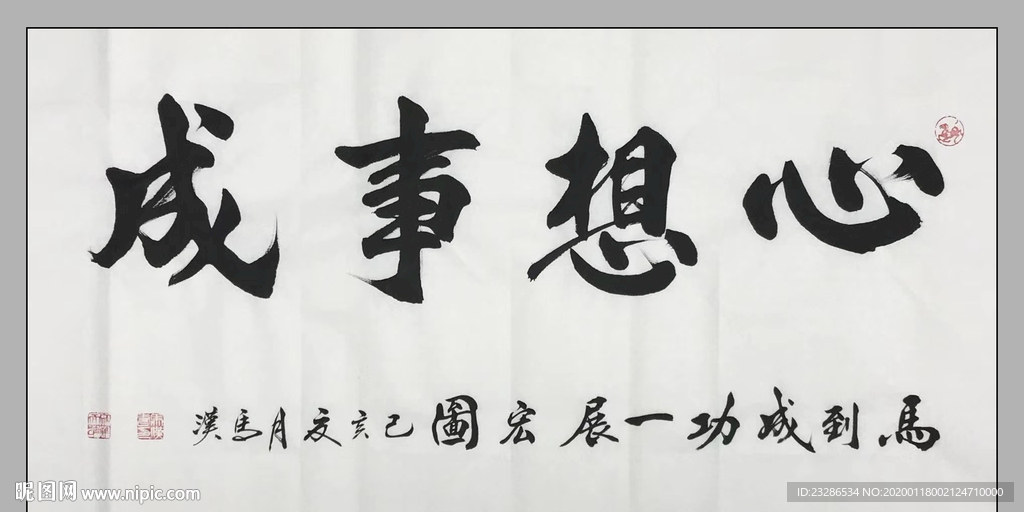 心想事成
馬到成功一展宏圖 己亥夏月馬漢
昵图网 www.nipic.com
ID:23286534 NO:20200118002124710000